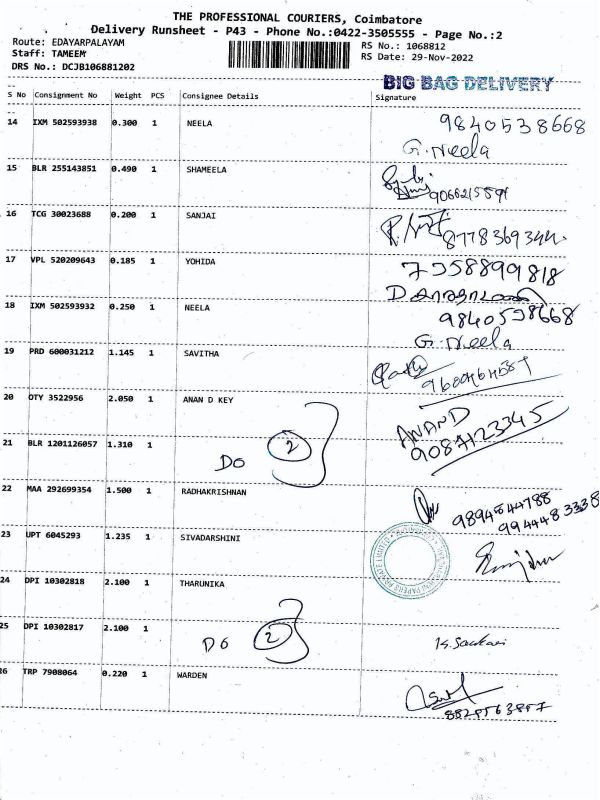 THE PROFESSIONAL COURIERS, Coimbatore
Delivery Runsheet - P43 - Phone No.:0422-3505555 - Page No.:2
Route: EDAYARPALAYAM
Staff: TAMEEM
DRS No.: DCJB106881202
RS No.: 1068812
RS Date: 29-Nov-2022
BIG BAG DELIVERY
S No Consignment No Weight PCS Consignee Details Signature
14 IXM 502593938 0.300 1 NEELA 9840538668
G.Neela
15 BLR 255143851 0.490 1 SHAMEELA
16 TCG 30023688 0.200 1 SANJAI
17 VPL 520209643 0.185 1 YOHIDA 7358899818
18 IXM 502593932 0.250 1 NEELA 9840538668
G.Neela
19 PRD 600031212 1.145 1 SAVITHA
20 OTY 3522956 2.050 1 ANAN D KEY ANAND
9087123345
21 BLR 1201126057 1.310 1 DO 2
22 MAA 292699354 1.500 1 RADHAKRISHNAN 9894544788
9944483338
23 UPT 6045293 1.235 1 SIVADARSHINI
24 DPI 10302818 2.100 1 THARUNIKA
25 DPI 10302817 2.100 1 DO 2
26 TRP 7908064 0.220 1 WARDEN